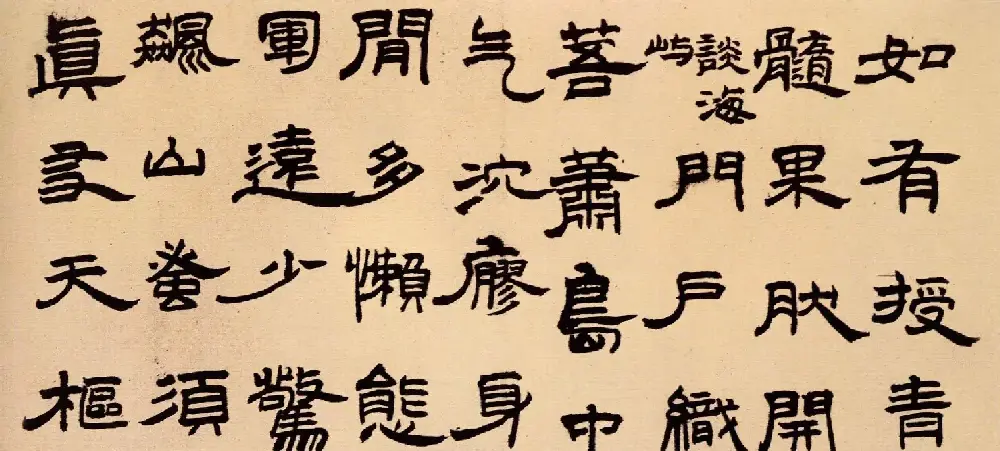 如有授青
髓果肰開
談海屿門戶織
菩蕭島中
气沉廖身
閒多懶態
軍遠少驚
飆山蚩須
眞天樞